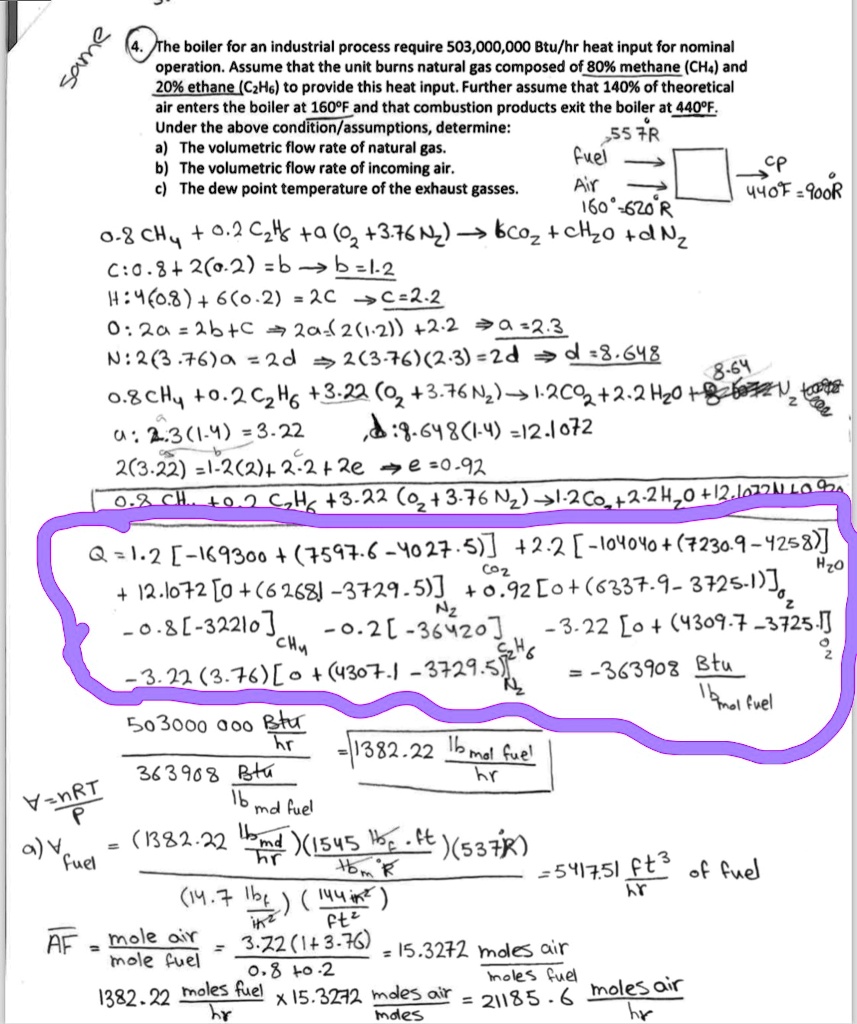 same
4. The boiler for an industrial process require 503,000,000 Btu/hr heat input for nominal
operation. Assume that the unit burns natural gas composed of 80% methane (CH₄) and
20% ethane (C₂H₆) to provide this heat input. Further assume that 140% of theoretical
air enters the boiler at 160ºF and that combustion products exit the boiler at 440ºF.
Under the above condition/assumptions, determine:
a) The volumetric flow rate of natural gas.
b) The volumetric flow rate of incoming air.
c) The dew point temperature of the exhaust gasses.
557R
fuel →
Air →
160°=620°R
→ CP
440°F = 900°R
0.8 CH₄ + 0.2 C₂H₆ + a (O₂ + 3.76 N₂) → bCO₂ + cH₂O + dN₂
C: 0.8 + 2(0.2) = b → b = 1.2
H: 4(0.8) + 6(0.2) = 2C → C = 2.2
O: 2a = 2b + c ⇒ 2a = (2(1.2)) + 2.2 ⇒ a = 2.3
N: 2(3.76)a = 2d ⇒ 2(3.76)(2.3) = 2d ⇒ d = 8.648
8.64
0.8 CH₄ + 0.2 C₂H₆ + 3.22 (O₂ + 3.76 N₂) → 1.2CO₂ + 2.2 H₂O + N₂
a: 2.3(1.4) = 3.22 , d: 8.648(1.4) = 12.1072
2(3.22) = 1.2(2) + 2.2 + 2e → e = 0.92
0.8 CH₄ + 0.2 C₂H₆ + 3.22 (O₂ + 3.76 N₂) → 1.2 CO₂ + 2.2 H₂O + 12.1072N + 0.92
Q = 1.2 [-169300 + (7597.6 - 4027.5)] CO₂ + 2.2 [-104040 + (7230.9 - 4258)] H₂O
+ 12.1072 [0 + (6268.1 - 3729.5)] N₂ + 0.92 [0 + (6337.9 - 3725.1)] O₂
- 0.8 [-32210] CH₄ - 0.2 [-36420] C₂H₆ - 3.22 [0 + (4309.7 - 3725.1)] O₂
- 3.22 (3.76) [0 + (4307.1 - 3729.5)] N₂ = -363908 Btu / lbmol fuel
503000 000 Btu/hr
363908 Btu / lb mol fuel
= 1382.22 lb mol fuel / hr
V = nRT / P
a) V fuel = (1382.22 lbmol/hr)(1545 lbf . ft / lbm °R)(537°R)
(14.7 lbf/in²)(144 in²/ft²)
= 541751 ft³/hr of fuel
AF = mole air / mole fuel = 3.22(1+3.76) / 0.8 +0.2 = 15.3272 moles air / moles fuel
1382.22 moles fuel / hr × 15.3272 moles air / moles = 21185.6 moles air / hr